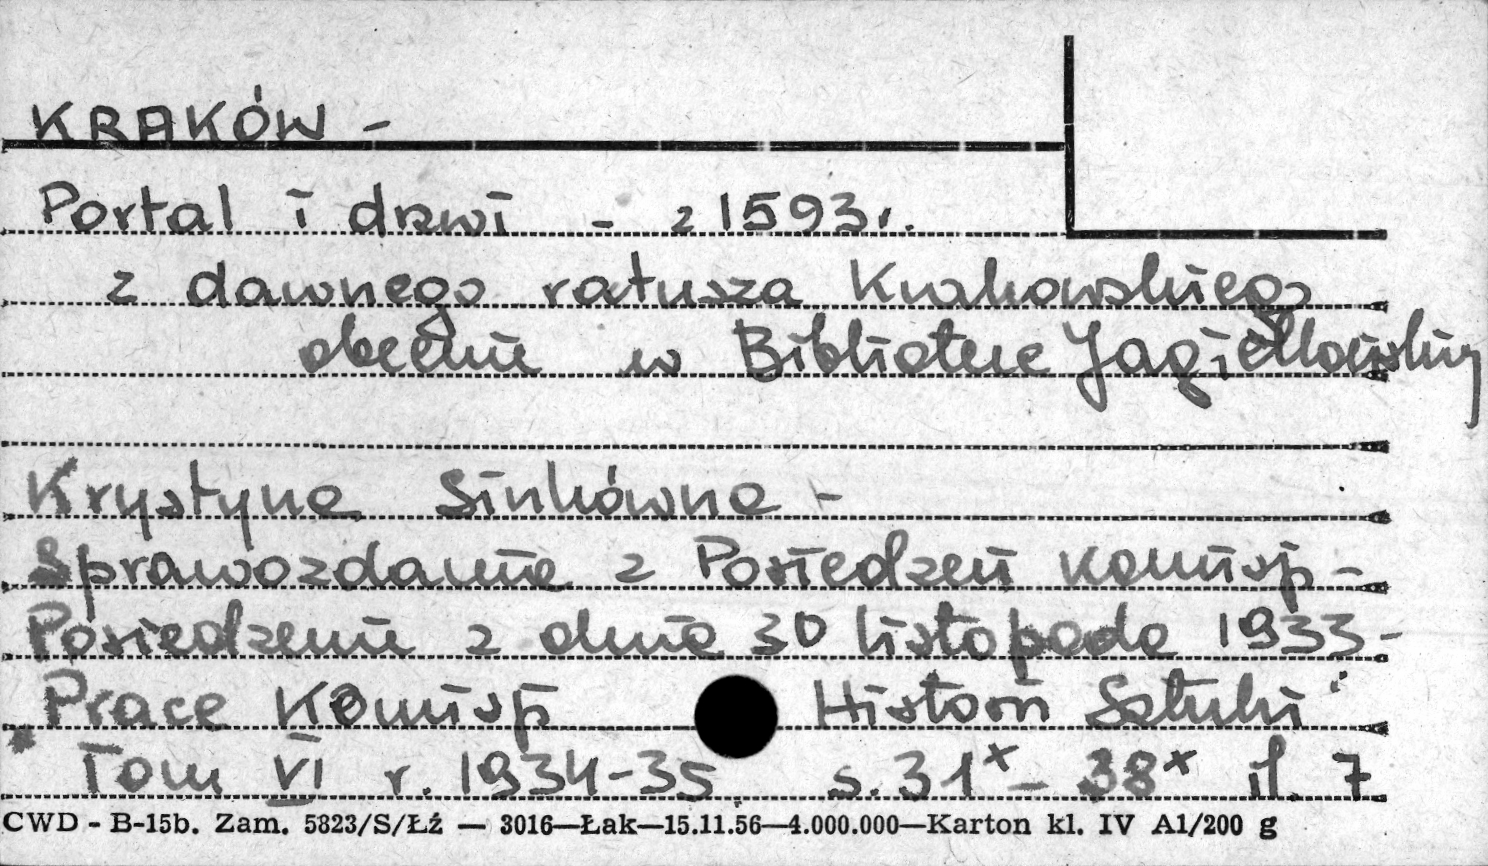 KRAKÓW -
Portal i drzwi - z 1593 r.
z dawnego ratusza Krakowskiego
obecnie w Bibliotece Jagiellońskiej
Krystyna Sinkówna -
Sprawozdanie z Posiedzeń Komisji -
Posiedzenie z dnia 30 listopada 1933 -
Prace Komisji Historii Sztuki
Tom VI r. 1934-35 s. 31x - 38x il. 7
CWD - B-15b. Zam. 5823/S/Łź — 3016—Łak—15.11.56—4.000.000—Karton kl. IV A1/200 g